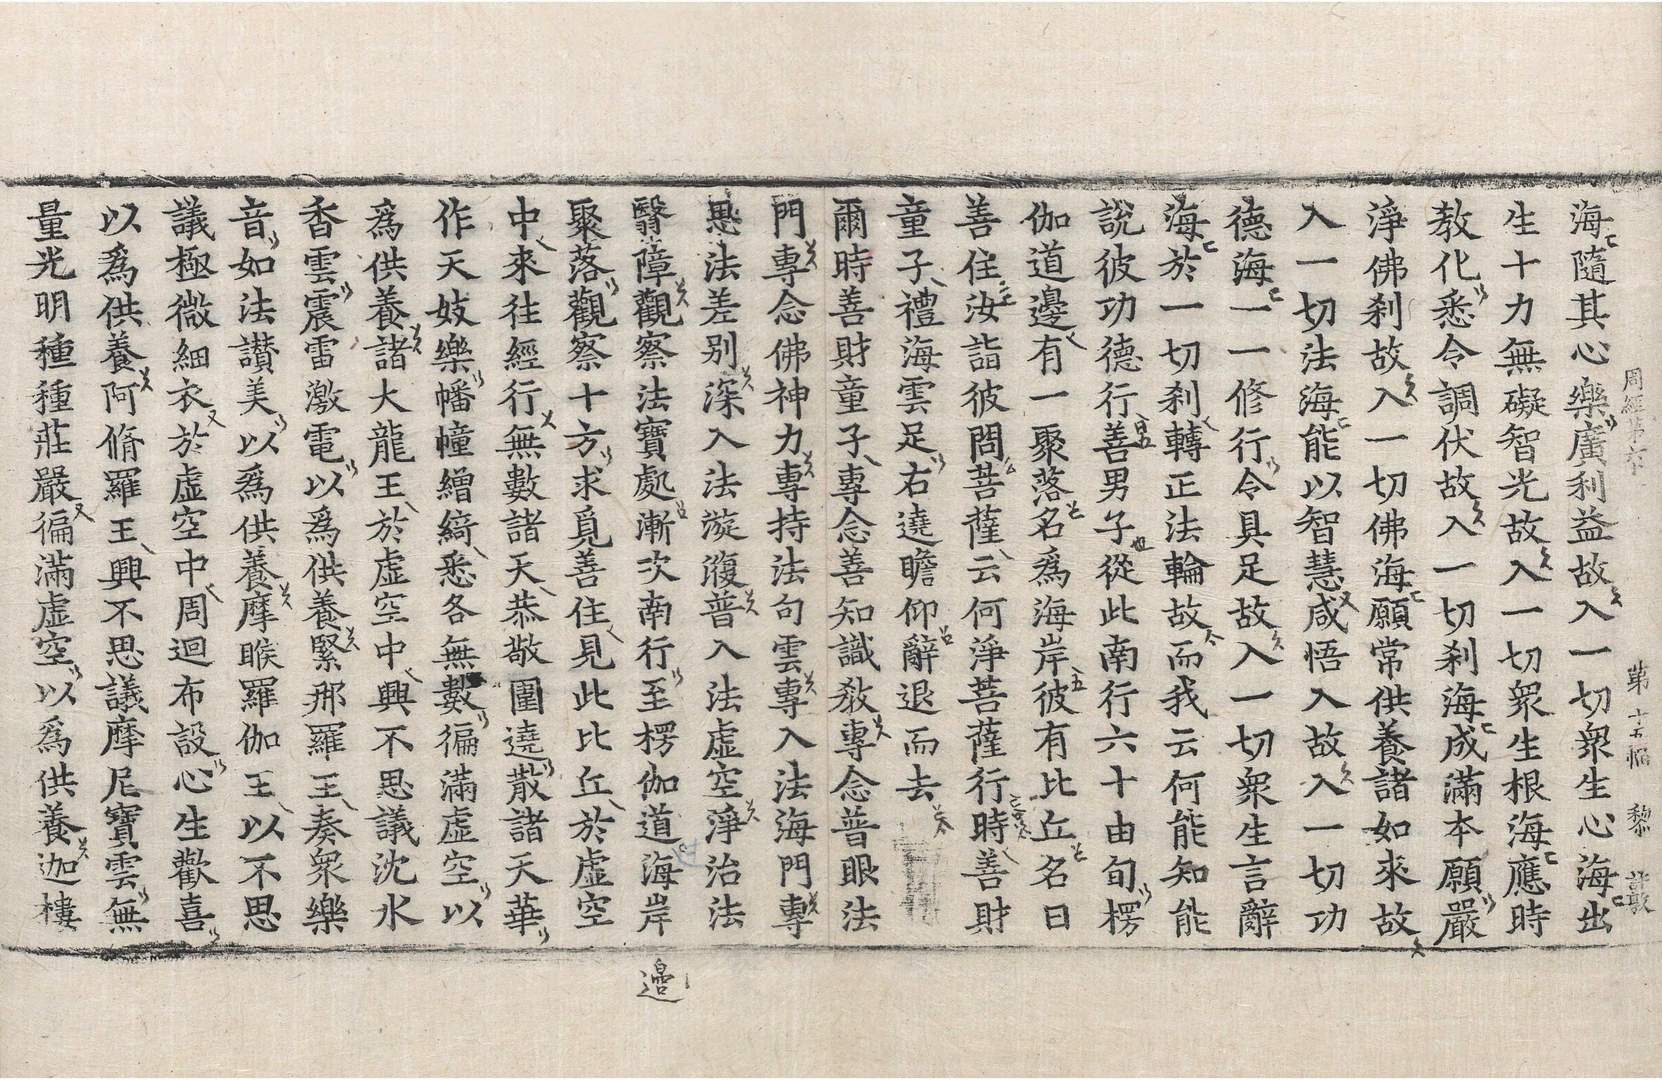 周經第六 第十五幅 黎
海隨其心樂廣利益故入一切衆生心海出
生十力無礙智光故入一切衆生根海應時
教化悉令調伏故入一切刹海成滿本願嚴
淨佛刹故入一切佛海願常供養諸如來故
入一切法海能以智慧咸悟入故入一切功
德海一一修行令具足故入一切衆生言辭
海於一切刹轉正法輪故而我云何能知能
說彼功德行善男子從此南行六十由旬楞
伽道邊有一聚落名爲海岸彼有比丘名曰
善住汝詣彼問菩薩云何淨菩薩行時善財
童子禮海雲足右遶瞻仰辭退而去
爾時善財童子專念善知識教專念普眼法
門專念佛神力專持法句雲專入法海門專
思法差别深入法漩澓普入法虛空淨治法
翳障觀察法寶處漸次南行至楞伽道海岸
聚落觀察十方求覓善住見此比丘於虛空
中來往經行無數諸天恭敬圍遶散諸天華
作天妓樂幡幢繒綺悉各無數徧滿虛空以
爲供養諸大龍王於虛空中興不思議沈水
香雲震雷激電以爲供養緊那羅王奏衆樂
音如法讃美以爲供養摩睺羅伽王以不思
議極微細衣於虛空中周迴布設心生歡喜
以爲供養阿脩羅王興不思議摩尼寶雲無
量光明種種莊嚴徧滿虛空以爲供養迦樓
邊